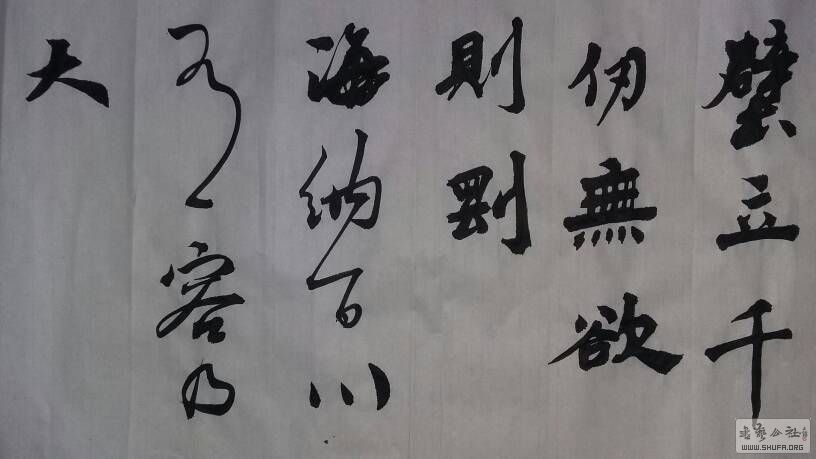 壁立千
仞無欲
則剛
海納百川
有容乃
大
書藝公社
WWW.SHUFA.ORG